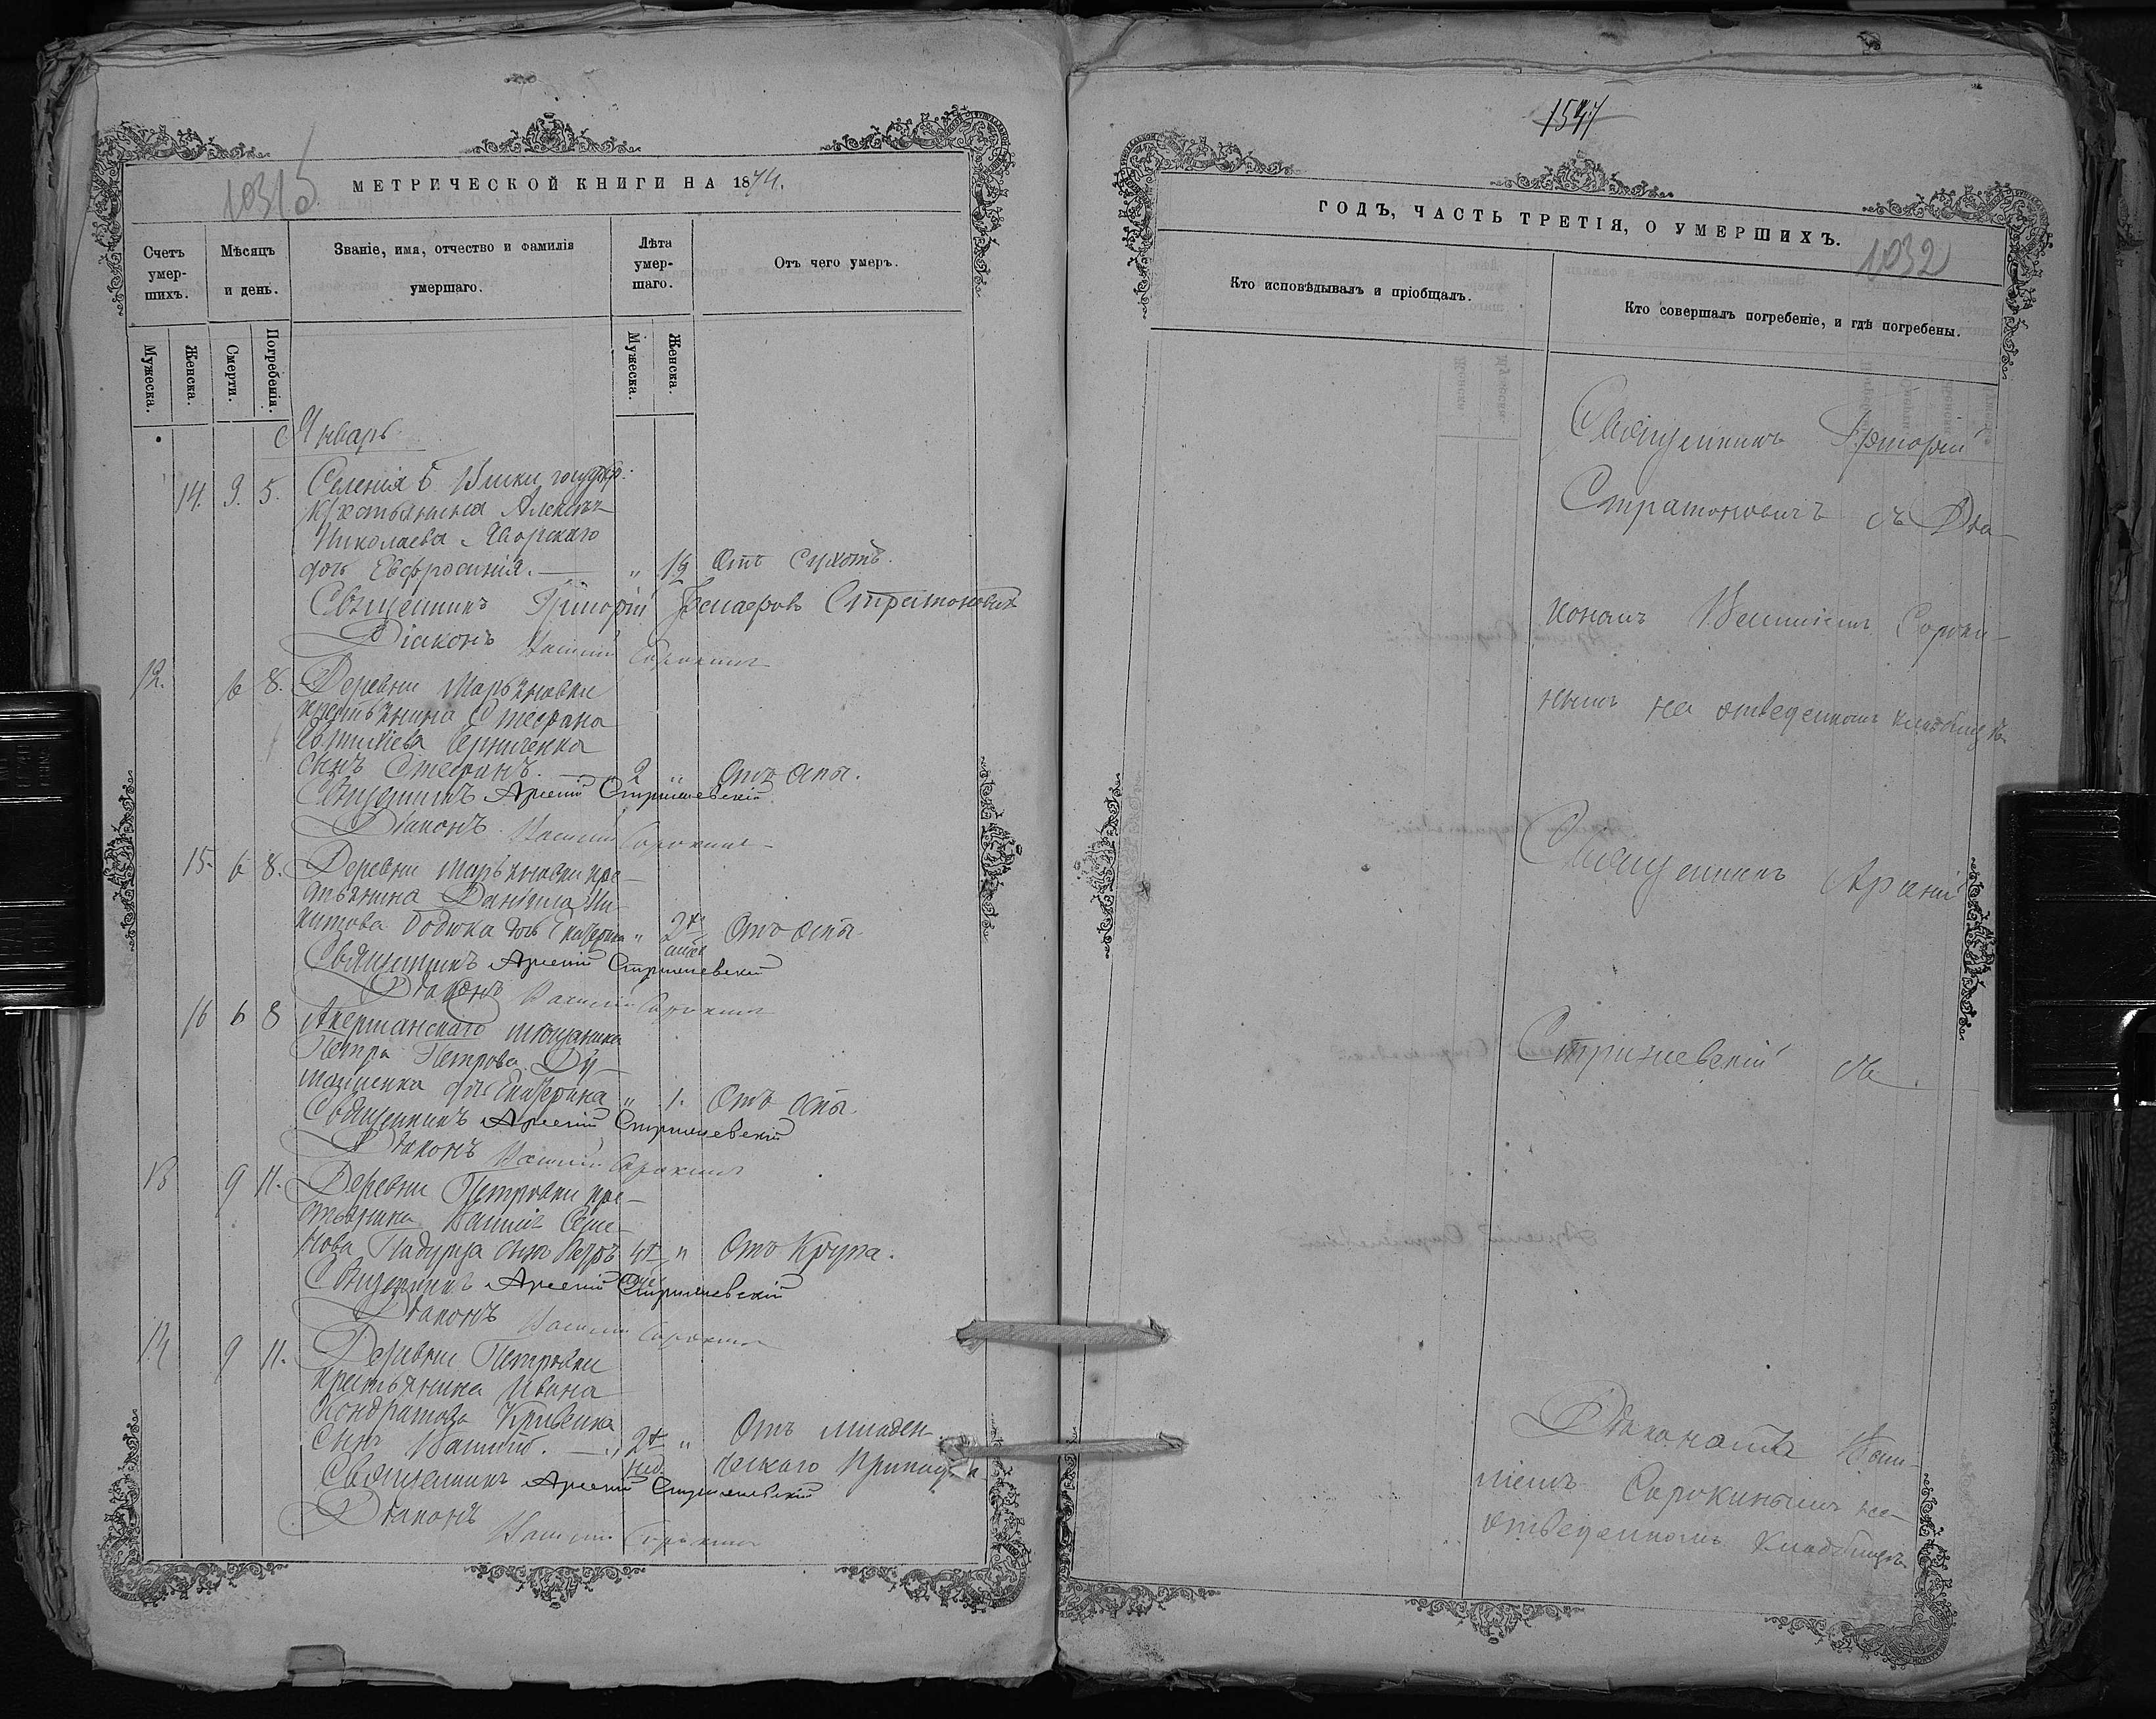 1031 об
МЕТРИЧЕСКОЙ КНИГИ НА 1874.
Счетъ умершихъ.
Мѣсяцъ и день.
Званіе, имя, отчество и фамилія умершаго.
Лѣта умершаго.
Отъ чего умеръ.
Мужеска.
Женска.
Смерти.
Погребенія.
Мужеска.
Женска.
Январь
14. 3. 5. Селенія Б.
Николаева
дочь Евфросинія. — " 1½ Отъ сухотъ.
Священникъ Григорій Стратоновичъ
Діаконъ Василій Сорокинъ
12. 6 8. Деревни Марьяновки
крестьянина Стефана
сынъ Стефанъ. 2 " Отъ оспы.
Священникъ Арсеній Стришевскій
Діаконъ Василій Сорокинъ
15. 6 8. Деревни Марьяновки кре-
стьянина Даніила Ни-
китова дочь Екатерина " 2хъ Отъ оспы.
Священникъ Арсеній Стришевскій
Діаконъ Василій Сорокинъ
16 6 8 Акерманскаго мѣщанина
Петра Петрова
дочь Екатерина " 1. Отъ оспы.
Священникъ Арсеній Стришевскій
Діаконъ Василій Сорокинъ
13 9 11. Деревни Петровки кре-
стьянина Василія Семе-
нова сынъ Петръ 4х " Отъ Крупа.
Священникъ Арсеній Стришевскій
Діаконъ Василій Сорокинъ
14 9 11. Деревни Петровки
крестьянина Ивана
Кондратова Кривенка
сынъ Василій. — 2х " Отъ младен-
нед. ческаго припадка
Священникъ Арсеній Стришевскій
Діаконъ Василій Сорокинъ
1547
ГОДЪ, ЧАСТЬ ТРЕТІЯ, О УМЕРШИХЪ.
1032
Кто исповѣдывалъ и пріобщалъ.
Кто совершалъ погребеніе, и гдѣ погребены.
Священникъ Григорій
Стратоновичъ съ Діа-
кономъ Василіемъ Сороки-
нымъ на отведенномъ кладбищѣ
Священникъ Арсеній
Стрижевскій съ
Діакономъ Васи-
ліемъ Сорокинымъ на
отведенномъ кладбищѣ